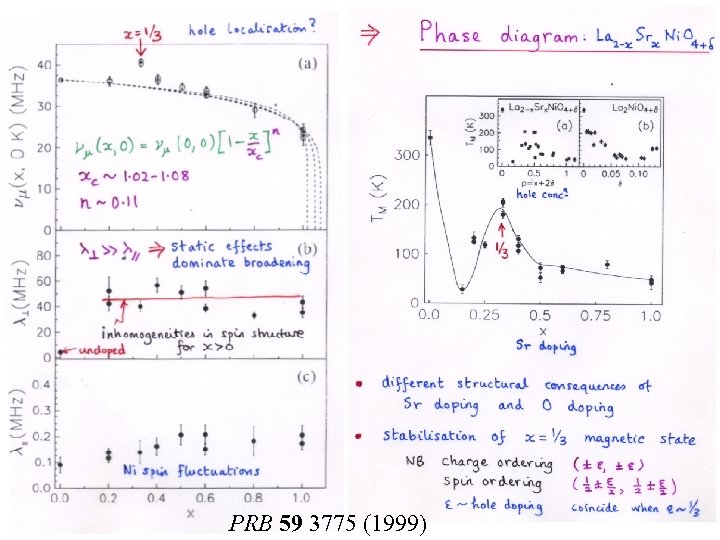 x = 1/3 hole localisation?
(a)
40
30
20
10
0
ν_μ(x, 0 K) (MHz)
ν_μ(x,0) = ν_μ(0,0)[1-x/x_c]^n
x_c ~ 1.02-1.08
n ~ 0.11
(b)
80
60
40
20
0
λ⊥(MHz)
λ⊥ >> λ// ⇒ static effects
dominate broadening
inhomogeneities in spin structure
for x>0
undoped
(c)
0.4
0.3
0.2
0.1
0.0
λ∥(MHz)
Ni spin fluctuations
0.0 0.2 0.4 0.6 0.8 1.0
x
⇒ Phase diagram: La2-x Srx NiO4+δ
La2-xSrxNiO4+δ
(a)
300
200
100
0
T_M (K)
0 0.5 1
p=x+2δ
hole conc?
La2NiO4+δ
(b)
0 0.05 0.10
δ
300
200
100
0
T_M (K)
1/3
0.0 0.25 0.50 0.75 1.0
x
Sr doping
• different structural consequences of
Sr doping and O doping
• stabilisation of x = 1/3 magnetic state
NB charge ordering (±ε, ±ε)
spin ordering (1/2 ± ε/2, 1/2 ± ε/2)
ε ~ hole doping coincide when ε ~ 1/3
PRB 59 3775 (1999)